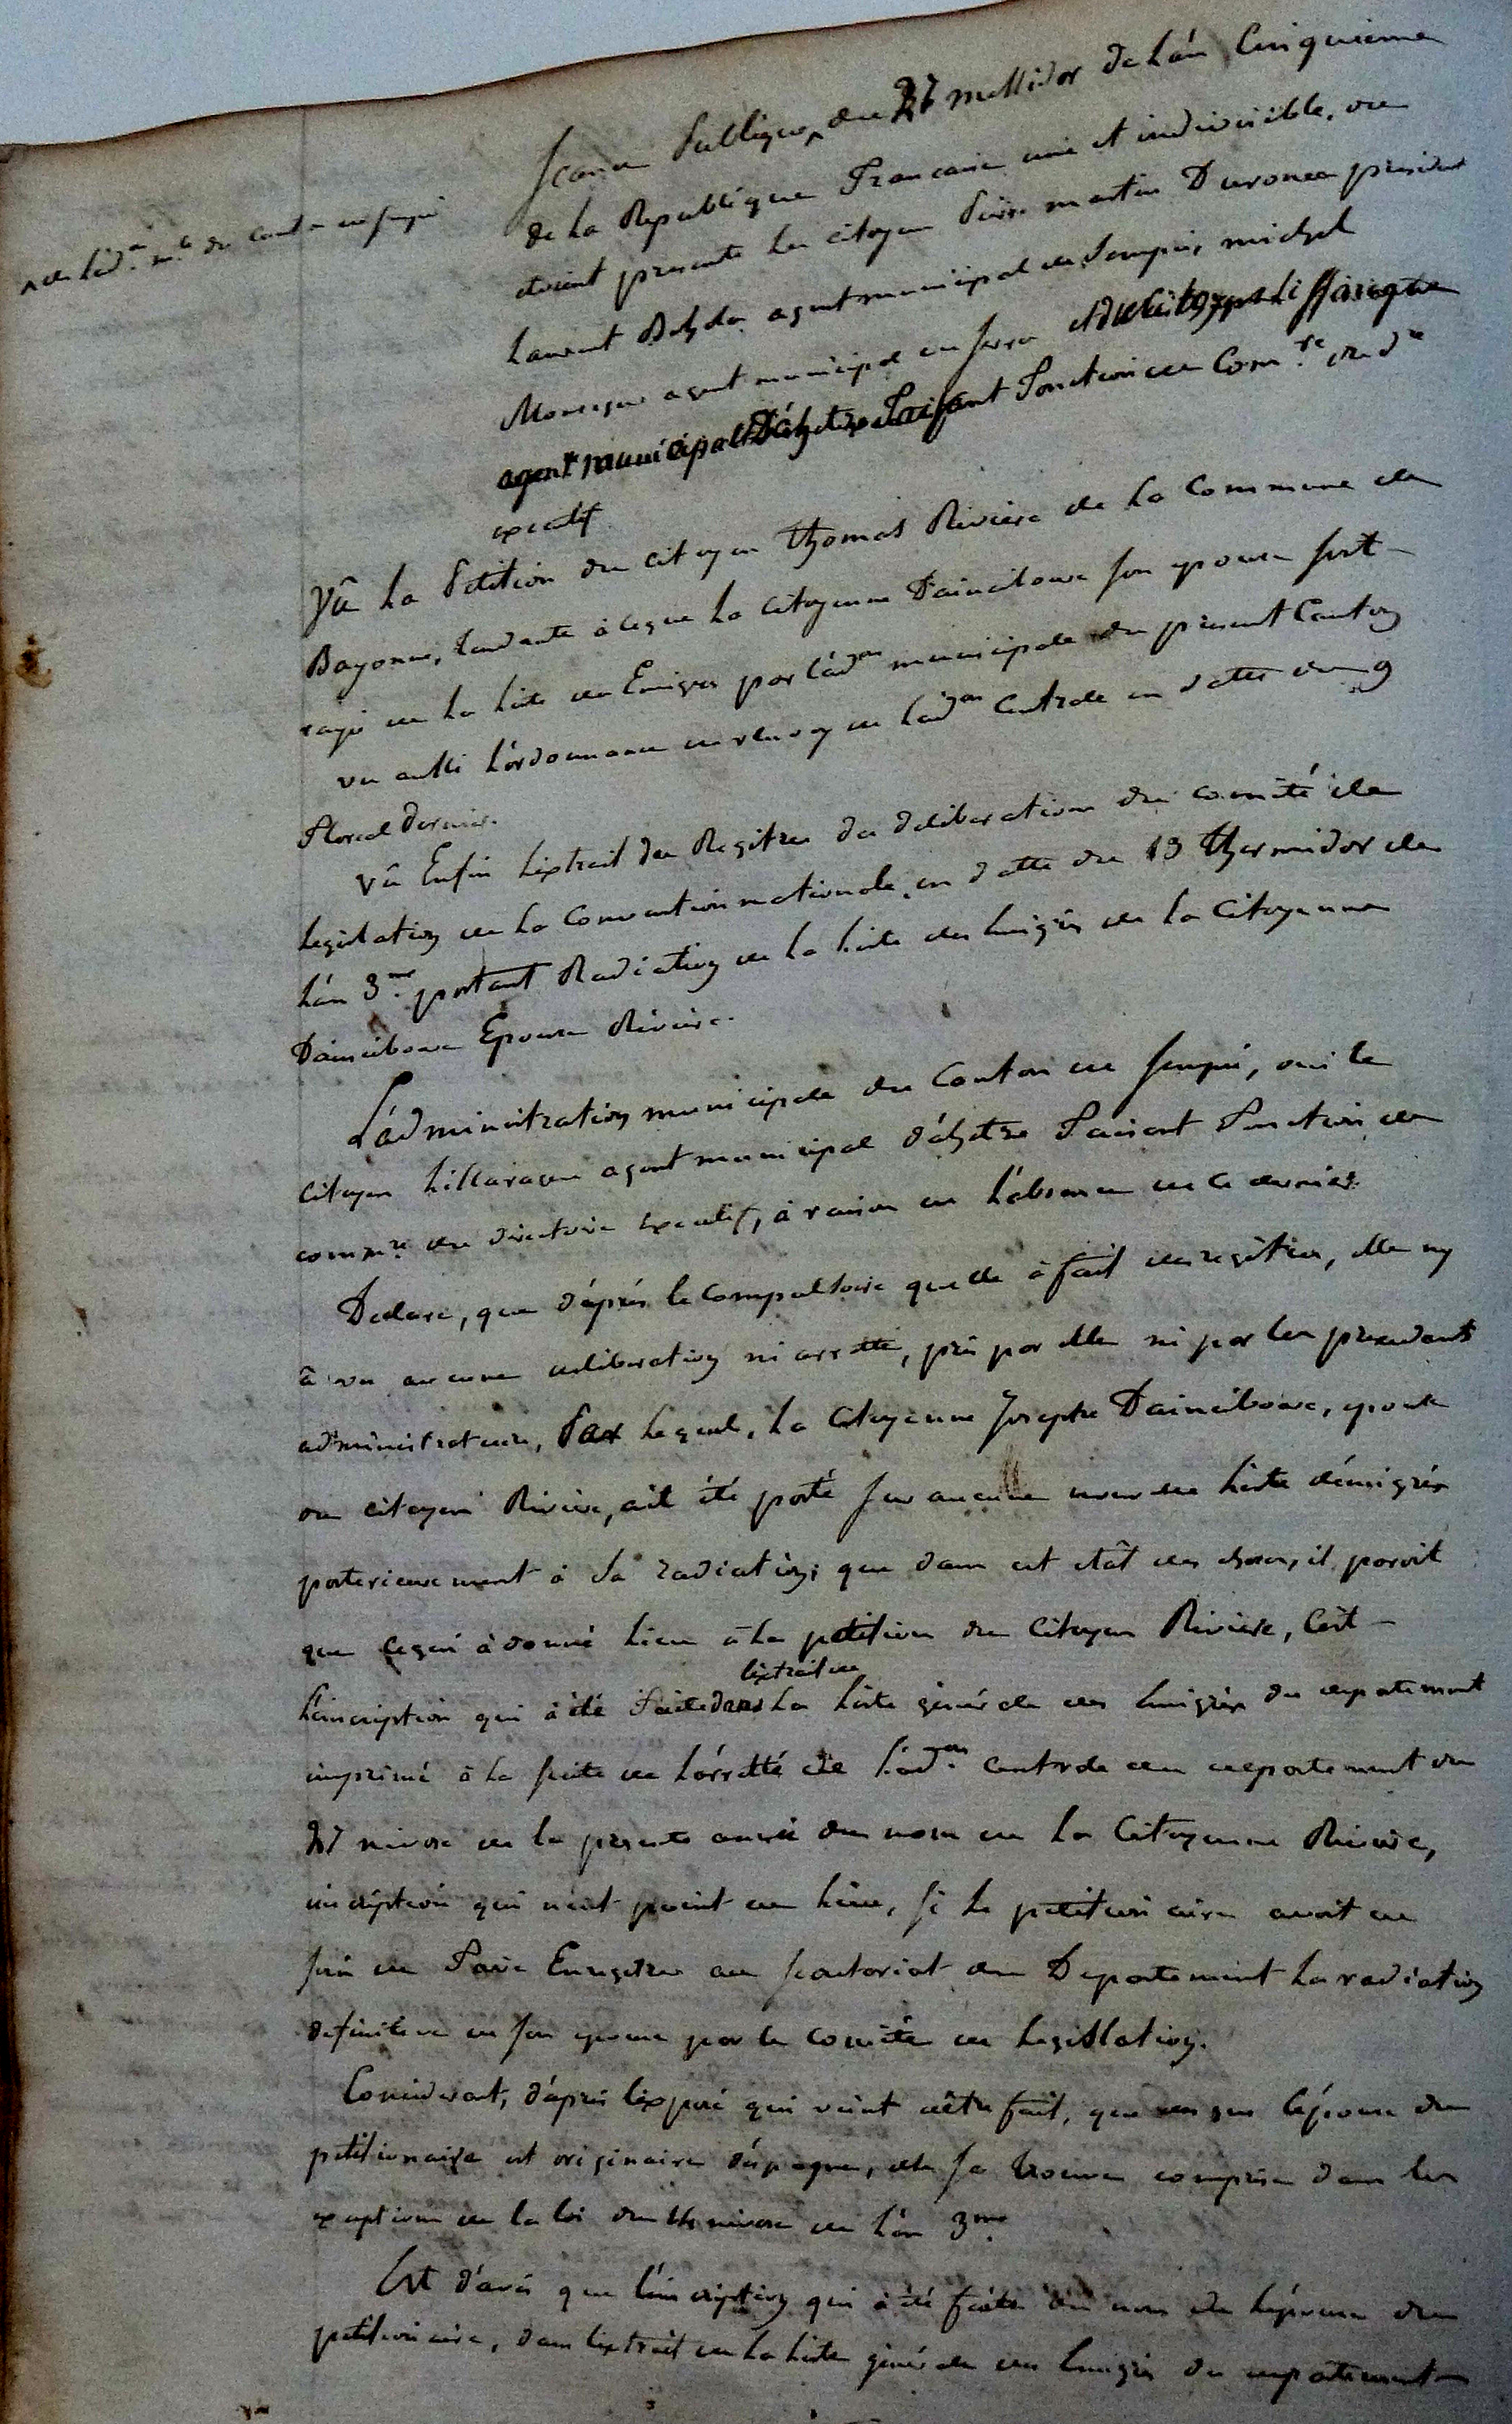 ^ de l'ad.on m.le du canton de sempé
Seance Publique ^ du 27 messidor de L'an Cinquieme
de La Republique Francaise une et indivisible, ou
étoient presents les citoyens Pierre martin Duronea president
Laurent agent municipal de sempé, michel
agent municipal de serra et du citoyen hillaragar
agent municipal d'ahetze Faisant Fonction de Com.re du d.re
executif
Vû La Petition du citoyen thomas Riviere de La Commune de
Bayonne, tendante à ceque La Citoyenne Dainciboure son epouse soit
rayé de La Liste des Emigres par l'ad.on municipale du present Canton
vu aussi L'ordonnance de renvoy de L'ad.on Centrale en datte du 9
Floreal dernier.
Vû Enfin L'extrait des Registres des deliberations du comité de
legislation de La Convention nationale, en datte du 13 thermidor de
L'an 3.me portant Radiation de La Liste des Emigrés de La Citoyenne
Dainciboure Epouse Riviere.
L'administration municipale du Canton de sempé, oui le
Citoyen hillaragar agent municipal d'ahetze Faisant Fonction de
comm.re du directoire executif, à raison de L'absence de ce dernier
Declare, que d'après le compulsoire quelle à fait des registres, elle ny
à vu aucune deliberation ni arretté, pris par elle ni par les precedants
administrateurs, Par Lequel, La Citoyenne Josephe Dainciboure, epouse
du citoyen Riviere, ait été porté sur aucune nouvelle Liste d'émigrés
posterieurement à sa radiation; que dans cet etât des choses, il paroit
que cequi à donné Lieu à La petition du Citoyen Riviere, C'est
L'inscription qui à été Faite dans l'extrait de La Liste générale des Emigrés du departement
imprimé à La suite de L'arretté de L'ad.on Centrale du departement du
27 nivose de la presente année du nom de La Citoyenne Riviere,
inscription qui n'eut point eu Lieu, si Le petitionnaire avoit eu
soin de Faire Enregistrer au secretariat du Departement La radiation
definitive de son epouse par le comité de Legislation.
Considerant, d'après l'exposé qui vient d'être fait, que l'épouse du
petitionaire est originaire d'Espagne, elle se trouve comprise dans les
exceptions de la loi du nivose de L'an 3.me
Est d'avis que L'inscription qui à été faite du nom de L'épouse du
petitionaire, dans l'extrait de La Liste générale des Emigrés du departement